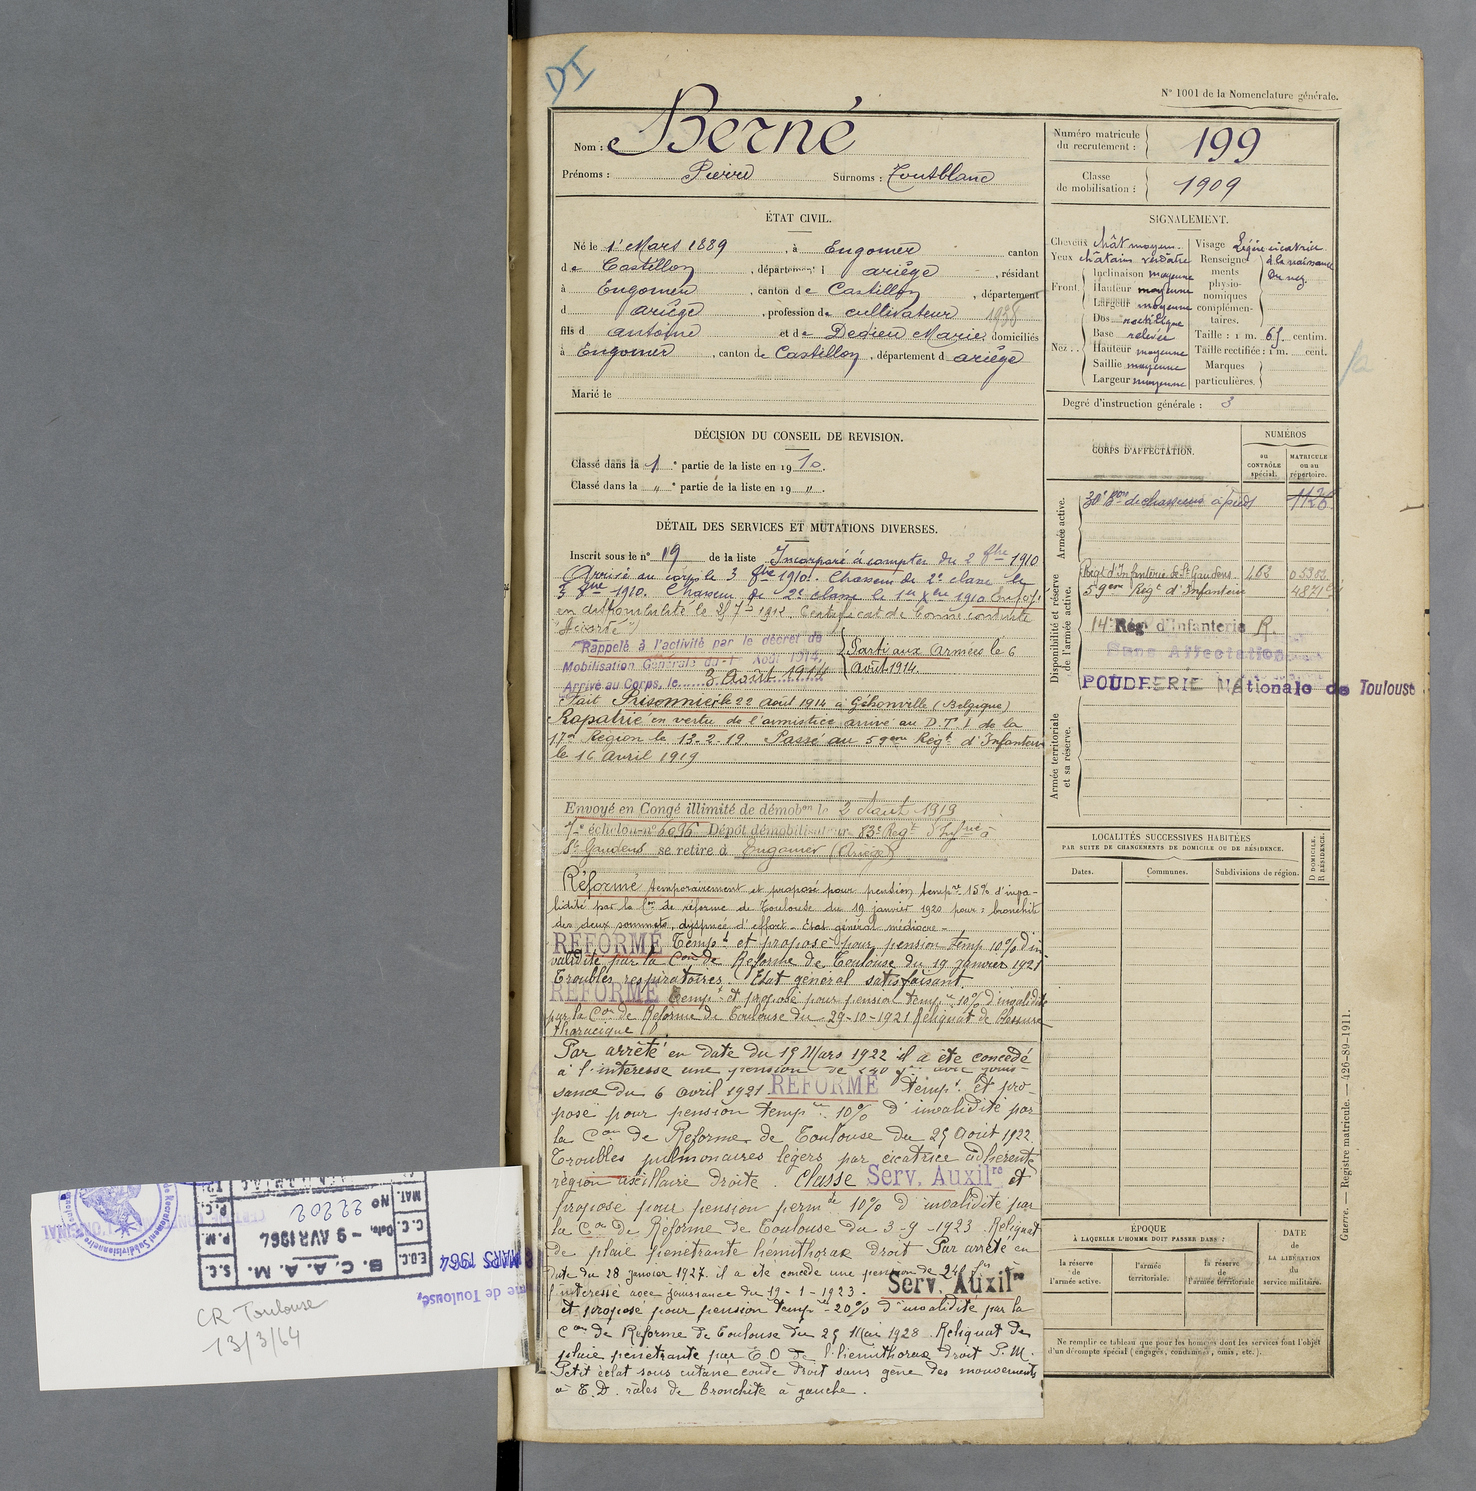 DI
N° 1001 de la Nomenclature générale.
Nom : Berné
Prénoms : Pierre Surnoms : Toutblanc
Numéro matricule du recrutement : 199
Classe de mobilisation : 1909
ÉTAT CIVIL.
Né le 1er Mars 1889, à Engomer canton
de Castillon, département d ariège, résidant
à Engomer, canton de Castillon, département
d ariège, profession de cultivateur 1938
fils d antoine et de Dedieu Marie, domiciliés
à Engomer, canton de Castillon, département d ariège
Marié le
SIGNALEMENT.
Cheveux chât moyen.
Yeux châtain verdâtre
Front. Inclinaison moyenne
Hauteur moyenne
Largeur moyenne
Nez... Dos rectiligne
Base relevée
Hauteur moyenne
Saillie moyenne
Largeur moyenne
Visage Légère cicatrice
Renseignements physionomiques complémentaires. à la naissance du nez
Taille : 1 m. 65 centim.
Taille rectifiée : 1 m. cent.
Marques particulières.
Degré d'instruction générale : 3
DÉCISION DU CONSEIL DE REVISION.
Classé dans la 1 e partie de la liste en 19 10.
Classé dans la " e partie de la liste en 19 ".
DÉTAIL DES SERVICES ET MUTATIONS DIVERSES.
Inscrit sous le n° 119 de la liste Incorporé à compter du 2 8bre 1910
Arrivé au corps le 3 8bre 1910. Chasseur de 2e classe le
3 8bre 1910. Chasseur de 2e classe le 1er Xbre 1910 Envoyé
en disponibilité le 25 7bre 1912. Certificat de bonne conduite
"Accordé"
Rappelé à l'activité par le décret de
Mobilisation Générale du 1er Août 1914.
Arrivé au Corps, le 3 Août 1914
Parti aux Armées le 6
Août 1914.
Fait Prisonnier le 22 août 1914 à Géhonville (Belgique)
Rapatrié en vertu de l'armistice arrivé au D.T.I de la
17e Région le 13-2-19 Passé au 59eme Regt d'Infanterie
le 16 avril 1919
Envoyé en Congé illimité de démobon le 2 Aout 1919
7e échelon n° 6096 Dépôt démobilisateur 83e Regt d'Infrie à
St Gaudens se retire à Engomer (Ariège)
Réformé temporairement et proposé pour pension tempre 15% d'inva-
lidité par la Con de réforme de Toulouse du 19 janvier 1920 pour : bronchite
des deux sommets, dyspnée d'effort - Etat général médiocre -
RÉFORMÉ Tempt et proposé pour pension temp 10% d'in
validité par la Con de Reforme de Toulouse du 19 janvier 1921
Troubles respiratoires. Etat general satisfaisant
RÉFORMÉ Tempt et proposé pour pension tempre 10% d'invalidité
par la Con de Réforme de Toulouse du 29-10-1921 Reliquat de blessure
thoracique
Par arrêté en date du 15 Mars 1922 il a été concédé
à l'interesse une pension de 240 frs avec jouis-
sance du 6 avril 1921 RÉFORMÉ tempt et pro-
posé pour pension tempre 10% d'invalidité par
la Con de Réforme de Toulouse du 25 Aout 1922.
Troubles pulmonaires légers par cicatrice adhérente
région axillaire droite. Classé Serv. Auxilre et
proposé pour pension permte 10% d'invalidité par
la Con de Réforme de Toulouse du 3-9-1923 Reliquat
de plaie pénétrante hémithorax droit Par arrêté en
date du 28 janvier 1927. il a été concédé une pension de 240 frs
l'intéressé avec jouissance du 19-1-1923. Serv. Auxilre
et proposé pour pension tempre 20% d'invalidité par la
Con de Réforme de Toulouse du 25 Mai 1928. Reliquat de
plaie penetrante par E.O de l'hémithorax droit P.M.
Petit éclat sous cutané coude droit sans gêne des mouvements
à E.D. râles de bronchite à gauche.
CORPS D'AFFECTATION.
NUMÉROS
AU CONTRÔLE spécial.
MATRICULE ou au répertoire.
Armée active.
30e Bon de chasseurs à pied 1126
Disponibilité et réserve de l'armée active.
Regt d'Infanterie de St Gaudens 462
59eme Regt d'Infanterie
14e Rég d'Infanterie R.
Sans Affectation
POUDRERIE Nationale de Toulouse
Armée territoriale et sa réserve.
LOCALITÉS SUCCESSIVES HABITÉES
PAR SUITE DE CHANGEMENTS DE DOMICILE OU DE RÉSIDENCE.
Dates. Communes. Subdivisions de région. D DOMICILE. R RÉSIDENCE.
ÉPOQUE
À LAQUELLE L'HOMME DOIT PASSER DANS :
la réserve de l'armée active.
l'armée territoriale.
la réserve de l'armée territoriale
DATE de LA LIBÉRATION du service militaire.
Ne remplir ce tableau que pour les hommes dont les services font l'objet
d'un décompte spécial (engagés, condamnés, omis, etc.).
Guerre. — Registre matricule. — 426-89-1911.
B.C.A.A.M.
Date - 9 AVR 1964
N° 22202
MAT.
C.C.
E.D.C.
P.C.
P.M.
S.C.
MARS 1964
de Toulouse,
CR Toulouse
13/3/64